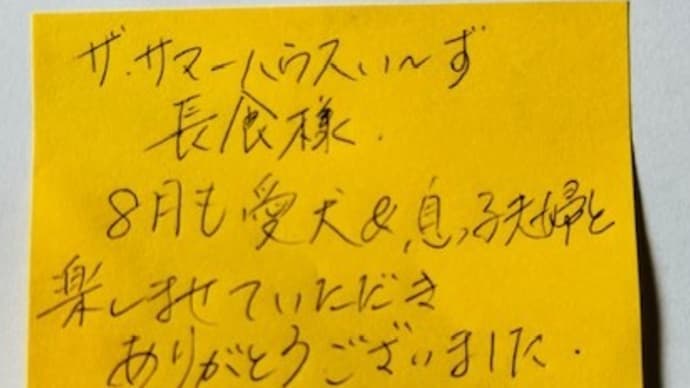 ザ・サマーハウスい〜ず
長食様.
8月も愛犬&息っ子夫婦と
楽しませていただき
ありがとうございました.